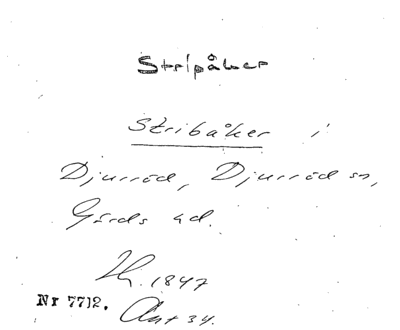 Stripåker
Stribåker i
Djurröd, Djurröd sn,
Gärds hd.
1847
Nr 7712.
34.